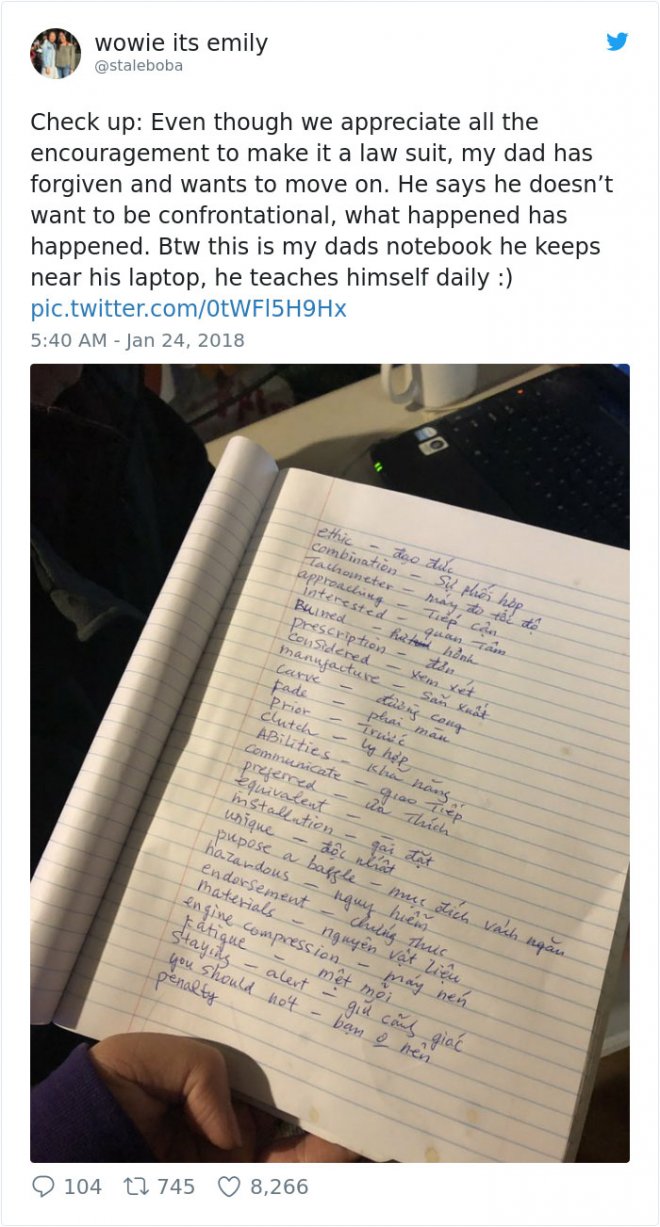 wowie its emily
@staleboba
Check up: Even though we appreciate all the
encouragement to make it a law suit, my dad has
forgiven and wants to move on. He says he doesn’t
want to be confrontational, what happened has
happened. Btw this is my dads notebook he keeps
near his laptop, he teaches himself daily :)
pic.twitter.com/0tWFl5H9Hx
5:40 AM - Jan 24, 2018
ethic - đạo đức
combination - Sự phối hợp
Tachometer - máy đo tốc độ
approaching - Tiếp cận
interested - quan Tâm
Ruined - hỏng
prescription - đơn
considered - xem xét
manufacture - sản xuất
curve - đường cong
fade - phai màu
Prior - Trước
clutch - ly hợp
ABilities - Khả năng
communicate - giao Tiếp
preferred - ưa Thích
equivalent - -
installation - gài đặt
unique - độc nhất
pupose a baffle - mục đích vách ngăn
hazardous - nguy hiểm
endorsement - chứng thực
materials - nguyên vật liệu
engine compression - máy nén
Fatigue - mệt mỏi
Staying - alert - giữ cảnh giác
you should not - bạn o nên
penalty
104 745 8,266